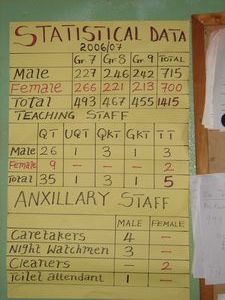 STATISTICAL DATA
2006/07
Gr 7 Gr 8 Gr 9 TOTAL
Male 227 246 242 715
Female 266 221 213 700
Total 493 467 455 1415
TEACHING STAFF
QT UQT QKT GKT TT
Male 26 1 3 1 3
Female 9 – – – 2
Total 35 1 3 1 5
ANXILLARY STAFF
MALE FEMALE
Caretakers 4 –
Night Watchmen 3 –
Cleaners – 2
Toilet attendant 1 –